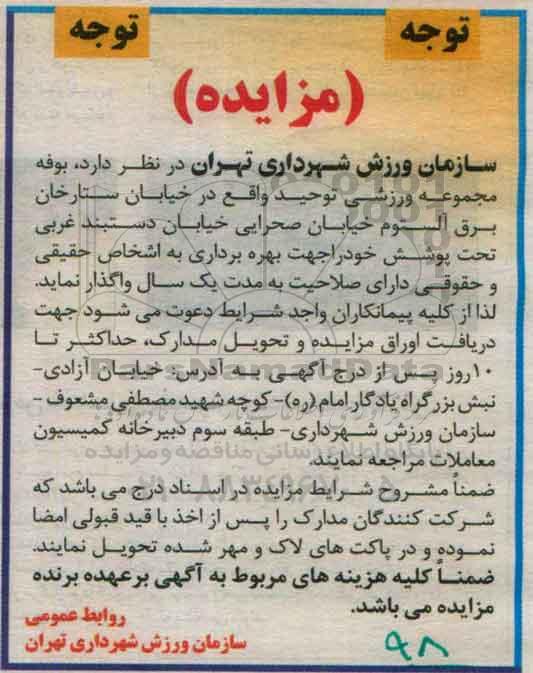 توجه توجه
(مزایده)
سازمان ورزش شهرداری تهران در نظر دارد، بوفه
مجموعه ورزشی توحید واقع در خیابان ستارخان
برق آلستوم خیابان صحرایی خیابان دستبند غربی
تحت پوشش خودراجهت بهره برداری به اشخاص حقیقی
و حقوقی دارای صلاحیت به مدت یک سال واگذار نماید.
لذا از کلیه پیمانکاران واجد شرایط دعوت می شود جهت
دریافت اوراق مزایده و تحویل مدارک، حداکثر تا
۱۰روز پس از درج آگهی به آدرس: خیابان آزادی-
نبش بزرگراه یادگار امام (ره)- کوچه شهید مصطفی مشعوف -
سازمان ورزش شهرداری- طبقه سوم دبیرخانه کمیسیون
معاملات مراجعه نمایند.
ضمناً مشروح شرایط مزایده در اسناد درج می باشد که
شرکت کنندگان مدارک را پس از اخذ با قید قبولی امضا
نموده و در پاکت های لاک و مهر شده تحویل نمایند.
ضمناً کلیه هزینه های مربوط به آگهی برعهده برنده
مزایده می باشد.
روابط عمومی
سازمان ورزش شهرداری تهران
۹۸